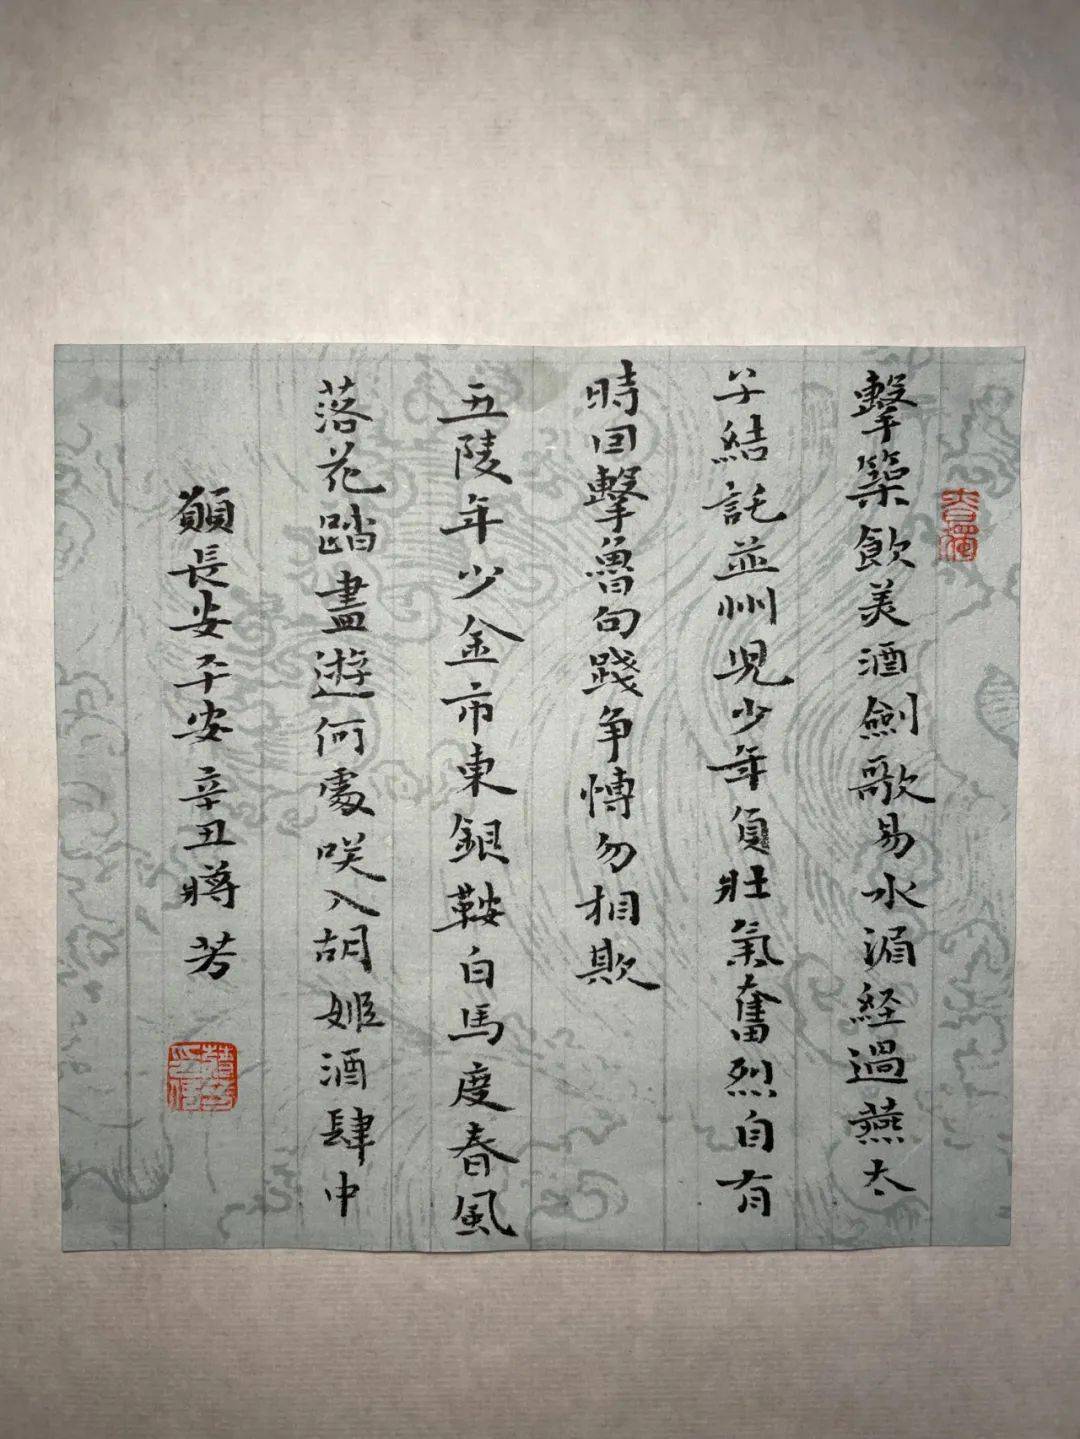 擊築飲美酒劍歌易水湄経過燕太
子結託並州児少年負壯氣奮烈自有
時囙擊魯句踐争博勿相欺
五陵年少金市東銀鞍白馬度春風
落花踏盡遊何處咲入胡姬酒肆中
願長安平安辛丑蔣芳